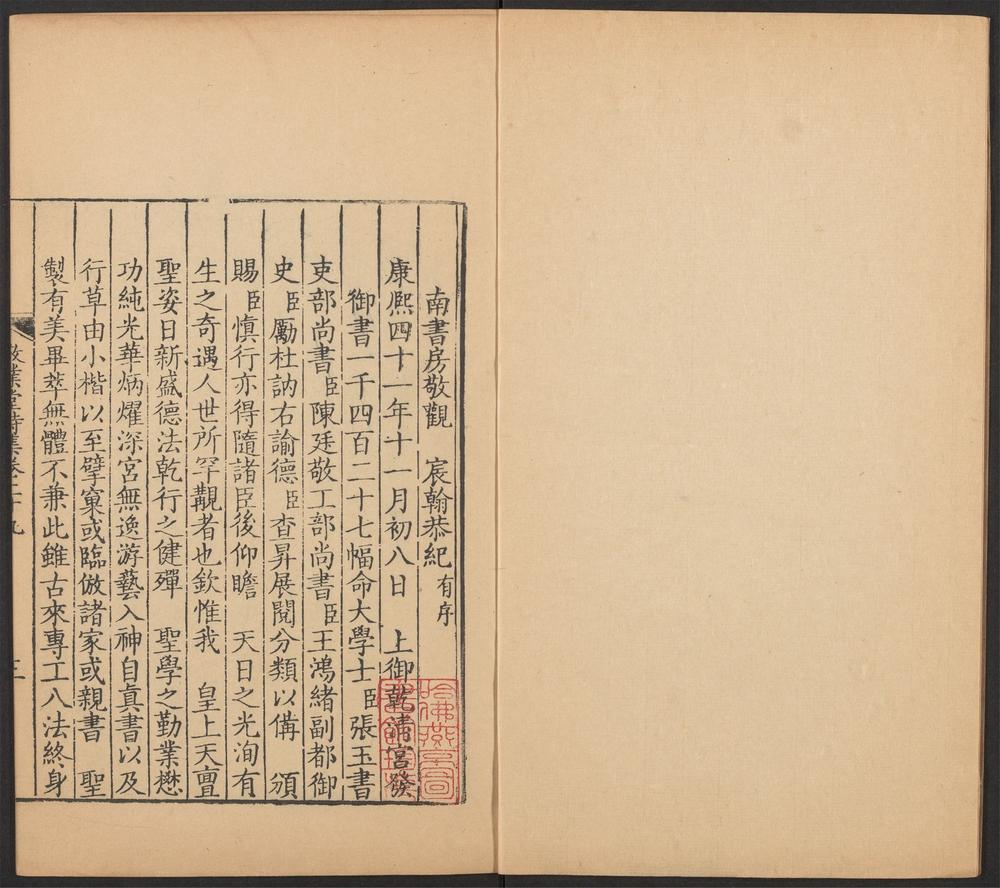 南書房敬觀　宸翰恭紀有序
康熙四十一年十一月初八日　上御乾清宮發
御書一千四百二十七幅命大學士臣張玉書
吏部尚書臣陳廷敬工部尚書臣王鴻緒副都御
史臣勵杜訥右諭德臣查昇展閱分類以備　頒
賜臣慎行亦得隨諸臣後仰瞻　天日之光洵有
生之奇遇人世所罕覯者也欽惟我　皇上天亶
聖姿日新盛德法乾行之健殫　聖學之勤業懋
功純光華炳燿深宮無逸游藝入神自真書以及
行草由小楷以至擘窠或臨倣諸家或親書　聖
製有美畢萃無體不兼此雖古來專工八法終身
敬業堂詩集卷二十九
三
哈佛燕京圖